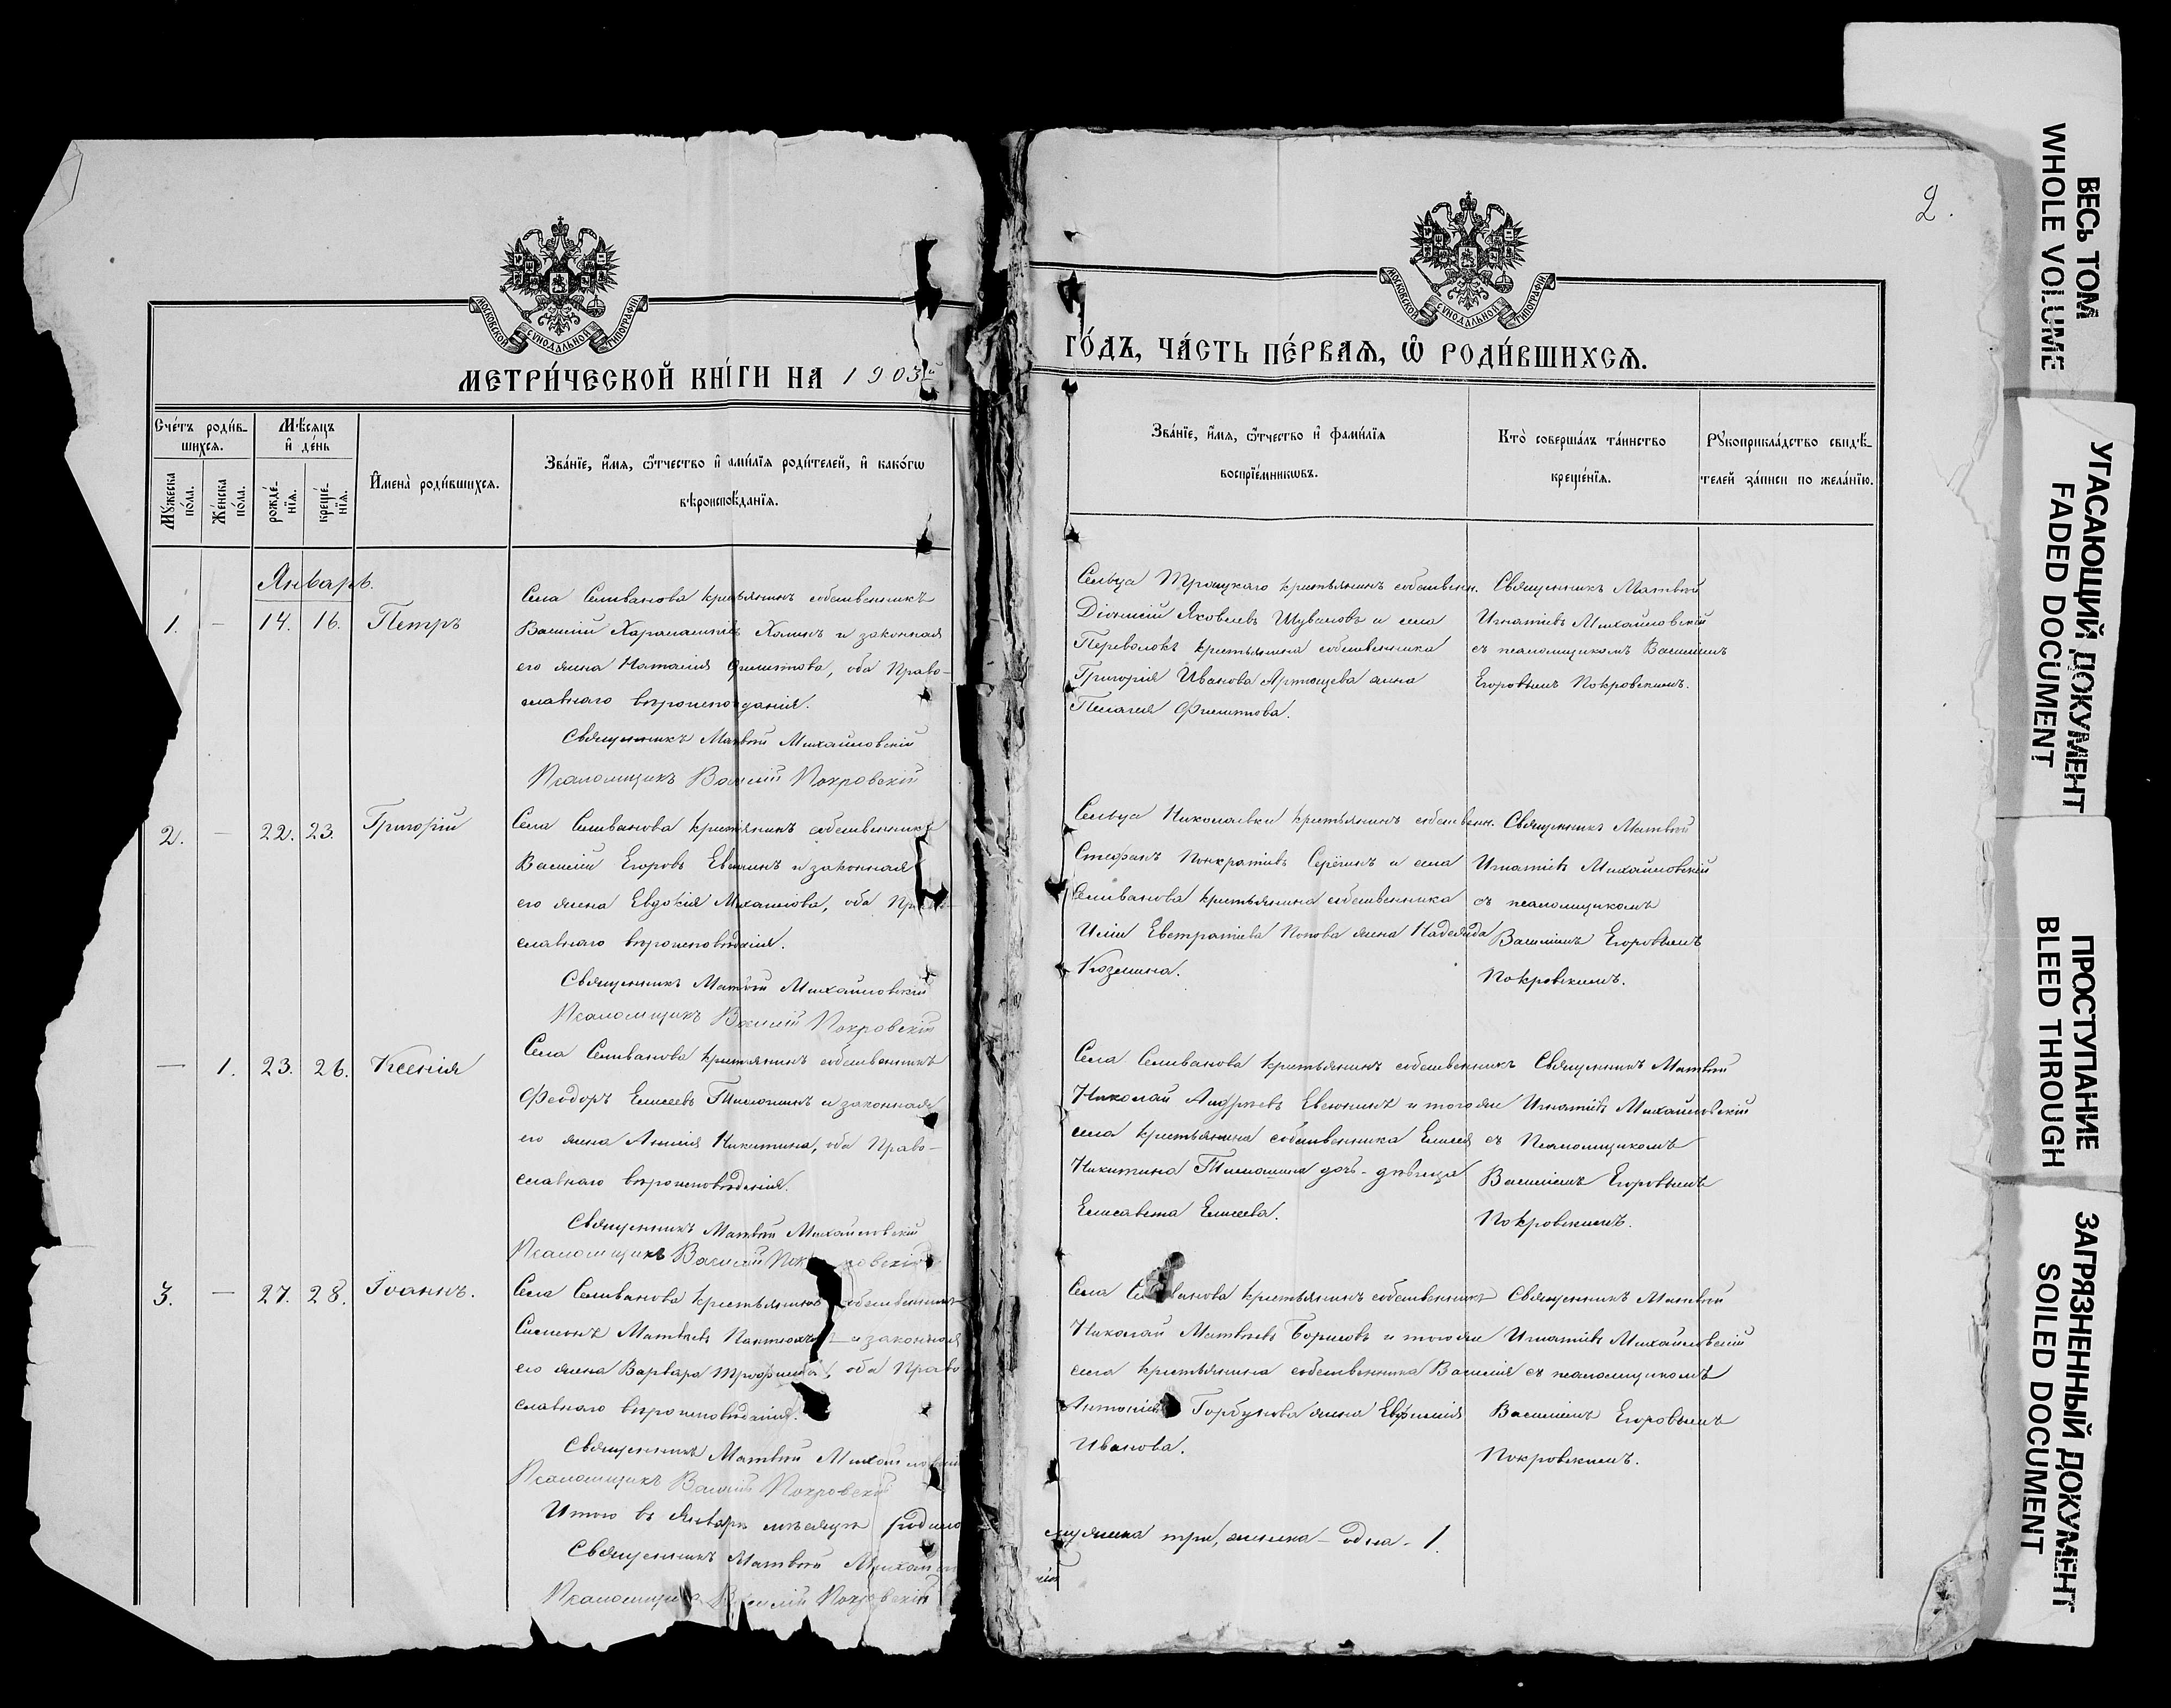 2.
МОСКОВСКОЙ СѴНОДАЛЬНОЙ ТИПОГРАФІИ
МОСКОВСКОЙ СѴНОДАЛЬНОЙ ТИПОГРАФІИ
МЕТРИ́ЧЕСКОЙ КНИ́ГИ НА 1903й
ГО́ДЪ, ЧА́СТЬ ПЕ́РВАѦ, Ѽ РОДИ́ВШИХСѦ.
Сче́тъ роди́в-
шихся.
Мѣ́сяцъ
и҆ де́нь
Мꙋ́жеска
по́ла.
Же́нска
по́ла.
рожде́-
нїя.
креще́-
нїя.
И҆мена̀ роди́вшихся.
Зва́нїе, и҆́мя, ѻ҆́тчество и҆ фами́лїя роди́телей, и҆ како́гѡ
вѣроисповѣ́данїя.
Зва́нїе, и҆́мя, ѻ҆́тчество и҆ фами́лїя
воспрїе́мникѡвъ.
Кто̀ соверша́лъ та́инство
креще́нїя.
Рꙋкоприкла́дство свидѣ́-
телей за́писи по жела́нїю.
Январь.
1. — 14. 16. Петръ
Села Селиванова крестьянинъ собственникъ
Василій Харлампіевъ и законная
его жена Наталія Филиппова, оба Право-
славнаго вѣроисповѣданія.
Священникъ Матвѣй Михайловскій
Псаломщикъ Василій Покровскій
Сельца Троицкаго крестьянинъ собственн.
Діонисій Яковлевъ Шуваловъ и села
Переволокъ крестьянина собственника
Григорія Иванова Артющева жена
Пелагея Филиппова.
Священникъ Матвѣй
Игнатіевъ Михайловскій
съ псаломщикомъ Василіемъ
Егоровымъ Покровскимъ.
2. — 22. 23. Григорій
Села Селиванова крестьянинъ собственникъ
Василій Егоровъ и законная
его жена Евдокія Михайлова, оба Право-
славнаго вѣроисповѣданія.
Священникъ Матвѣй Михайловскій
Псаломщикъ Василій Покровскій
Сельца Николаевки крестьянинъ собственн.
Стефанъ Понкратіевъ Серёгинъ и села
Селиванова крестьянина собственника
Иліи Евстратіева Попова жена Надежда
Козмина.
Священникъ Матвѣй
Игнатіевъ Михайловскій
съ псаломщикомъ
Василіемъ Егоровымъ
Покровскимъ.
— 1. 23. 26. Ксенія
Села Селиванова крестьянинъ собственникъ
Феодоръ Елисеевъ Тимошинъ и законная
его жена Никитина, оба Право-
славнаго вѣроисповѣданія.
Священникъ Матвѣй Михайловскій
Псаломщикъ Василій Покровскій
Села Селиванова крестьянинъ собственникъ
Николай Андреевъ Евсюнинъ и того же
села крестьянина собственника Елисея
Никитина Тимошина дочь-дѣвица
Елисавета Елисеева.
Священникъ Матвѣй
Игнатіевъ Михайловскій
съ Псаломщикомъ
Василіемъ Егоровымъ
Покровскимъ.
3. — 27. 28. Іоаннъ.
Села Селиванова крестьянинъ собственникъ
Симеонъ Матвѣевъ и законная
его жена Варвара Трофимова, оба Право
славнаго вѣроисповѣданія.
Священникъ Матвѣй Михайловскій
Псаломщикъ Василій Покровскій
Села Селиванова крестьянинъ собственникъ
Николай Матвѣевъ Борисовъ и того же
села крестьянина собственника Василія
Антоніева Горбунова жена Евфимія
Иванова.
Священникъ Матвѣй
Игнатіевъ Михайловскій
съ псаломщикомъ
Василіемъ Егоровымъ
Покровскимъ.
Итого въ Январѣ мѣсяцѣ родилось
мужеска три, женска — одна - 1.
Священникъ Матвѣй Михайловскій
Псаломщикъ Василій Покровскій
ВЕСЬ ТОМ
WHOLE VOLUME
УГАСАЮЩИЙ ДОКУМЕНТ
FADED DOCUMENT
ПРОСТУПАНИЕ
BLEED THROUGH
ЗАГРЯЗНЕННЫЙ ДОКУМЕНТ
SOILED DOCUMENT